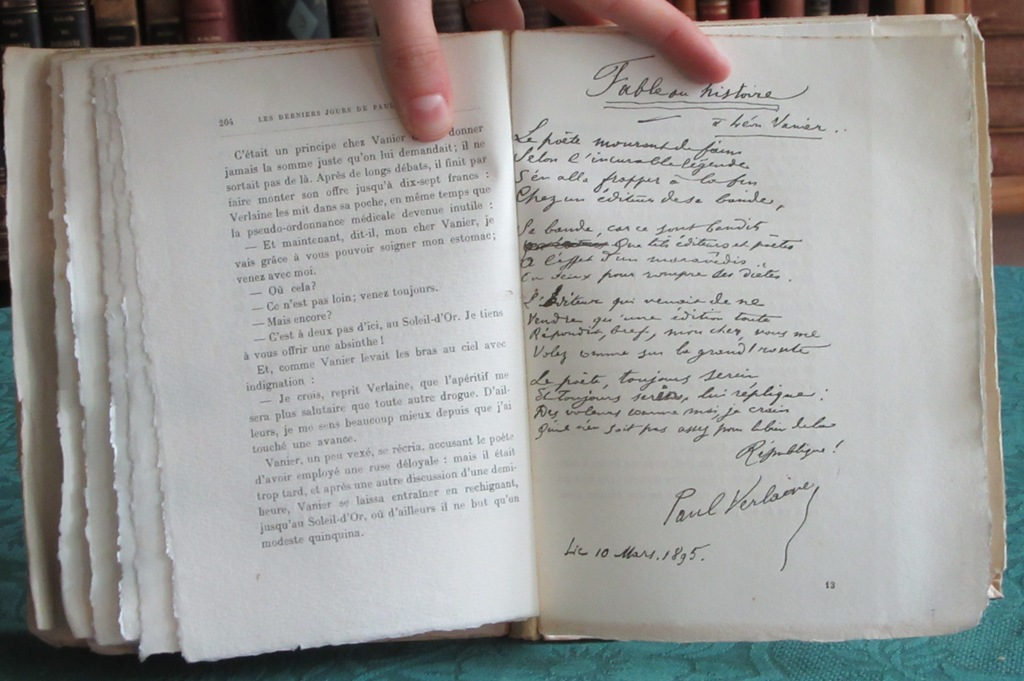 204 LES DERNIERS JOURS DE PAUL
C'était un principe chez Vanier donner
jamais la somme juste qu'on lui demandait ; il ne
sortait pas de là. Après de longs débats, il finit par
faire monter son offre jusqu'à dix-sept francs :
Verlaine les mit dans sa poche, en même temps que
la pseudo-ordonnance médicale devenue inutile :
— Et maintenant, dit-il, mon cher Vanier, je
vais grâce à vous pouvoir soigner mon estomac;
venez avec moi.
— Où cela?
— Ce n'est pas loin; venez toujours.
— Mais encore?
— C'est à deux pas d'ici, au Soleil-d'Or. Je tiens
à vous offrir une absinthe !
Et, comme Vanier levait les bras au ciel avec
indignation :
— Je crois, reprit Verlaine, que l'apéritif me
sera plus salutaire que toute autre drogue. D'ail-
leurs, je me sens beaucoup mieux depuis que j'ai
touché une avance.
Vanier, un peu vexé, se récria, accusant le poète
d'avoir employé une ruse déloyale : mais il était
trop tard, et après une autre discussion d'une demi-
heure, Vanier se laissa entraîner en rechignant,
jusqu'au Soleil-d'Or, où d'ailleurs il ne but qu'un
modeste quinquina.
Fable ou histoire
à Léon Vanier..
Le poète mourant de faim
Selon l'incurable légende
S'en alla frapper à la fin
Chez un éditeur de sa bande,
Je bande, car ce sont bandits
Que tels éditeurs et poètes
A l'effet d'un maravédis
En deux pour rompre des diètes.
L'éditeur qui venait de ne
Vendre qu'une édition toute
Répondit, bref, mon cher, vous me
Volez comme sur la grand'route
Le poète, toujours serein
Et toujours lui réplique :
Des voleurs comme moi, je crains
Qu'il n'en soit pas assez pour le bien de la
République !
Paul Verlaine
Lie 10 Mars. 1895.
13